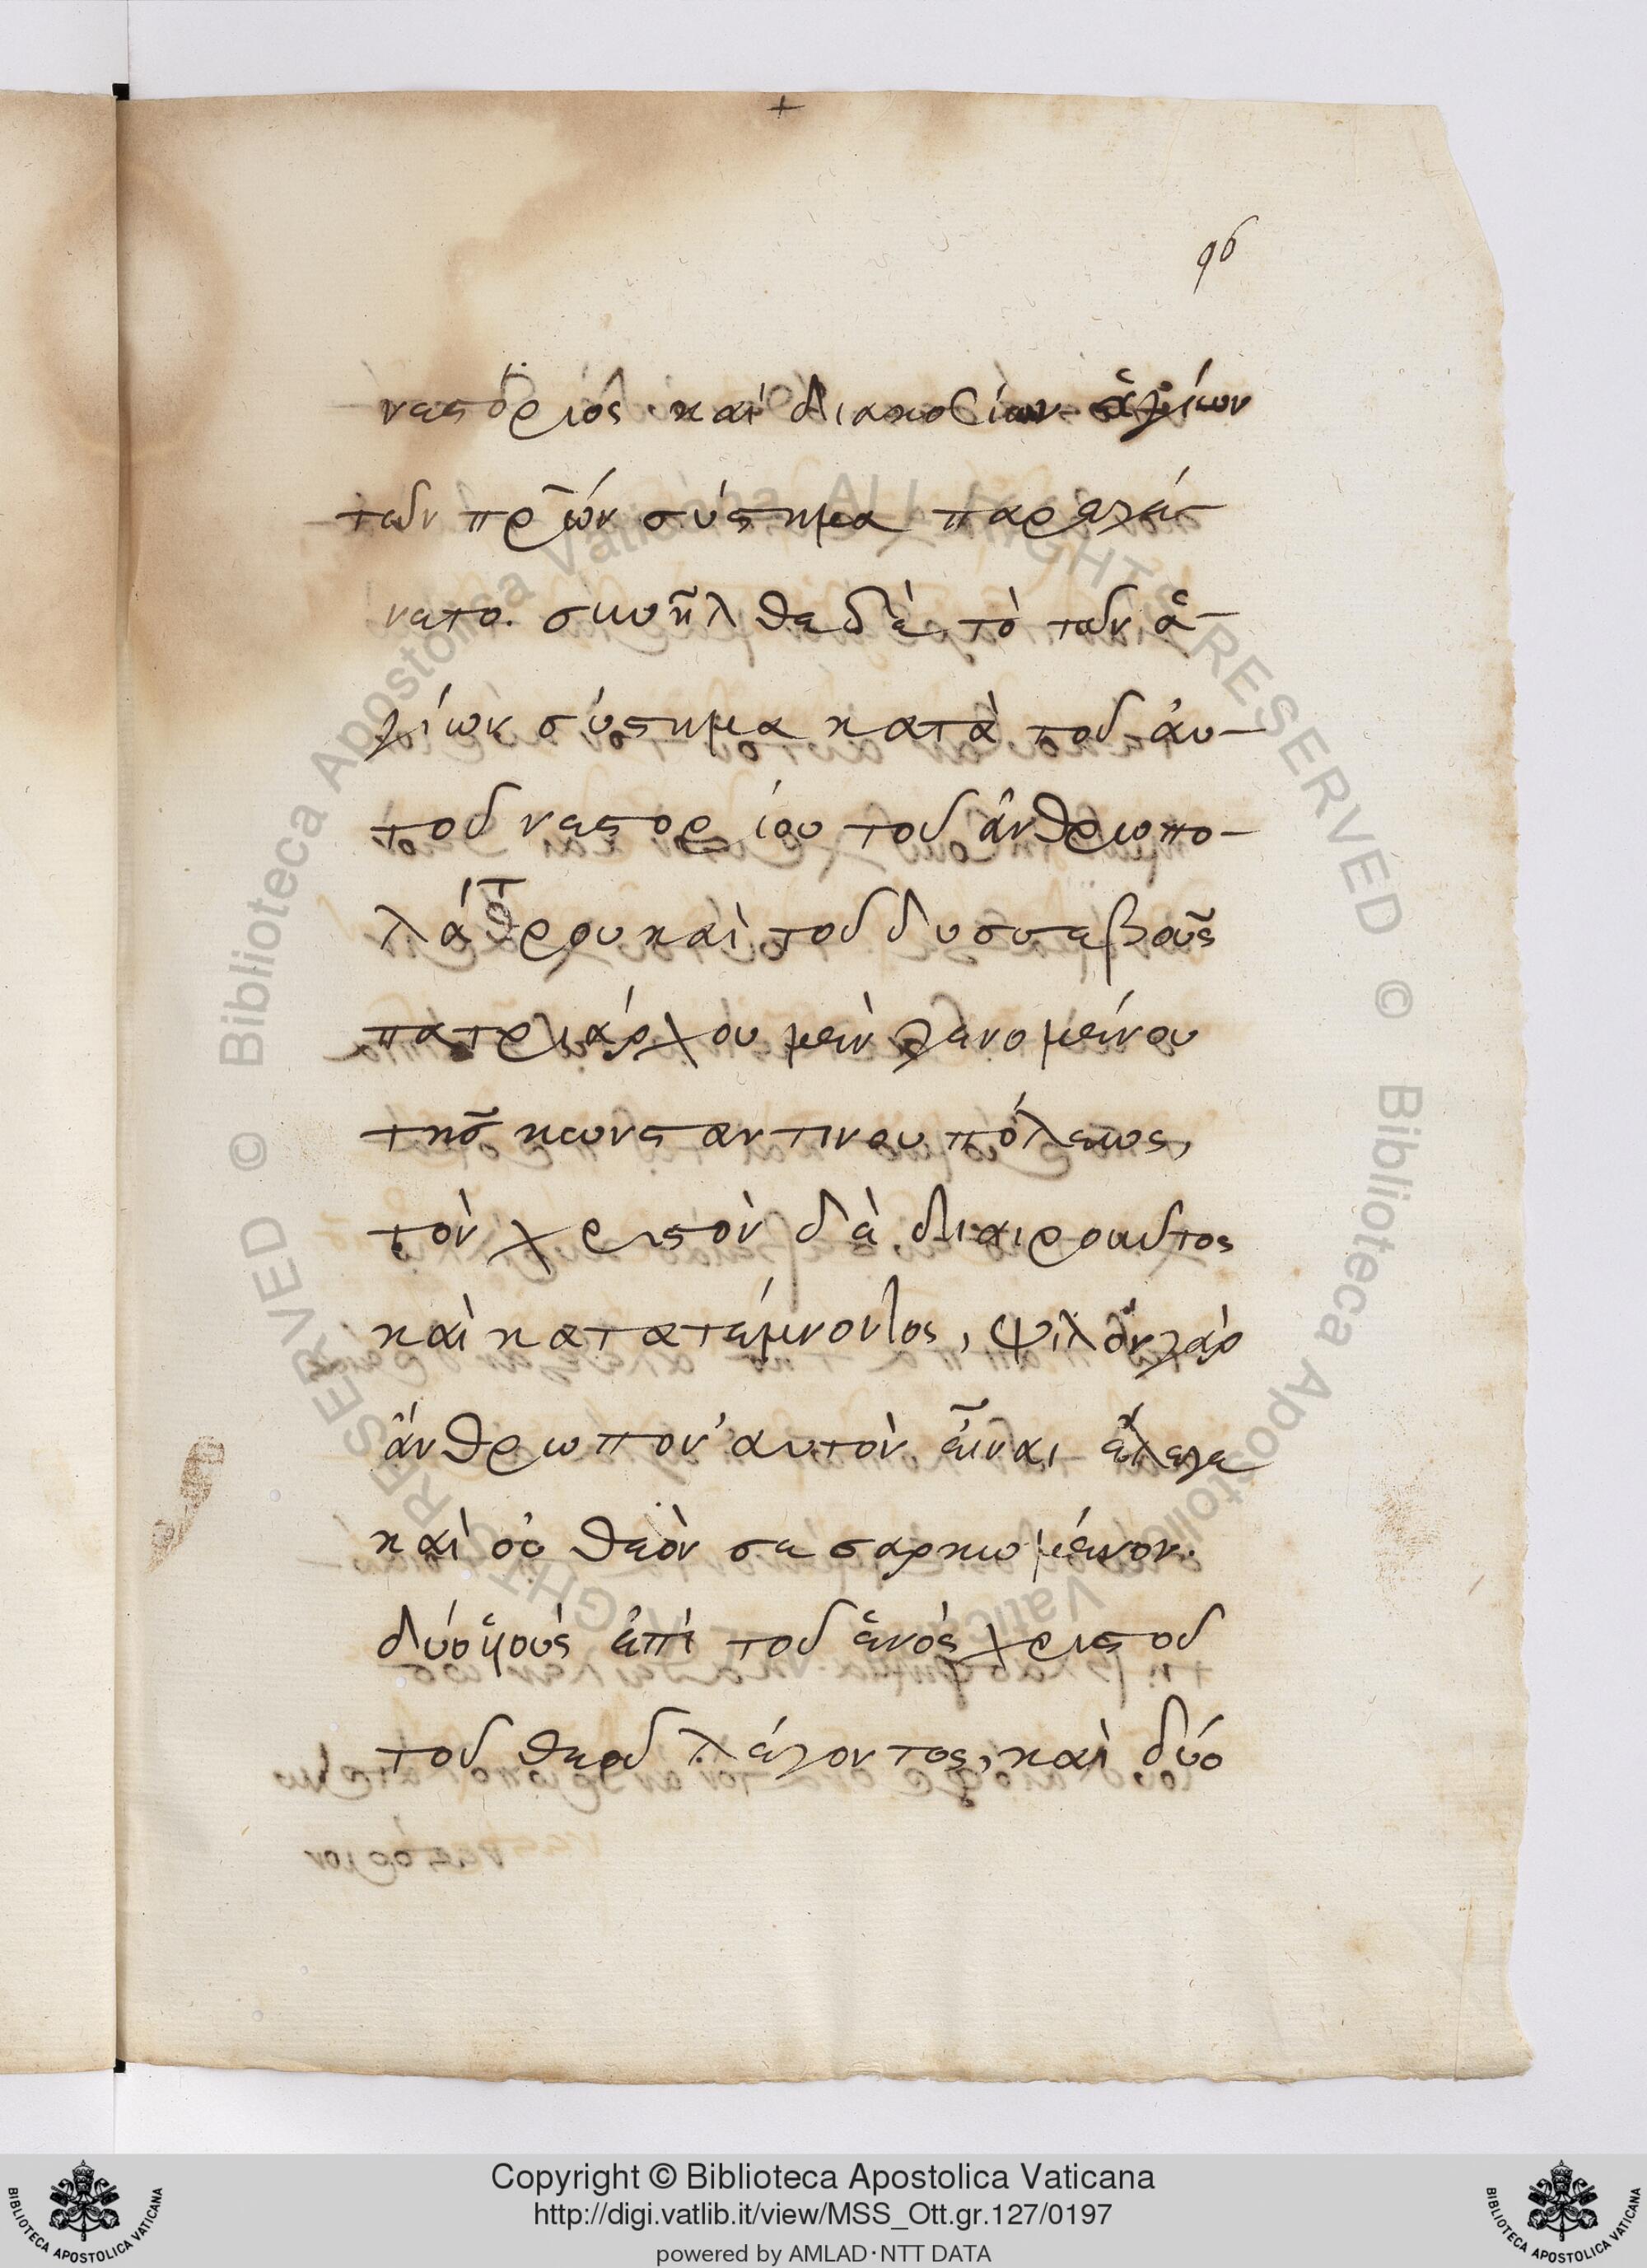 +
96
νεστόριος και διακοσίων ἁγίων
των πρ̅ων σύστημα παρεγέ-
νετο. συνῆλθε δὲ, τὸ των ἁ-
γίων σύστημα κατὰ του ἀυ-
του νεστορίου του ἀνθρωπο-
λάτρου καὶ του δυσσεβοῦς
πατριάρχου μὲν γενομένου
τῆσ κωνσταντινουπόλεως,
τὸν χριστὸν δὲ διαιρουντος
καὶ κατατέμνοντος, ψιλὸν γὰρ
ἄνθρωπον ἀυτὸν εἶναι ἔλεγε
καὶ οὐ θεὸν σεσαρκωμένον.
δύο ὑιοὺς ἐπὶ του ἑνὸς χριστου
του θεου λέγοντος, καὶ δύο
Copyright © Biblioteca Apostolica Vaticana
http://digi.vatlib.it/view/MSS_Ott.gr.127/0197
powered by AMLAD·NTT DATA
BIBLIOTECA APOSTOLICA VATICANA
BIBLIOTECA APOSTOLICA VATICANA